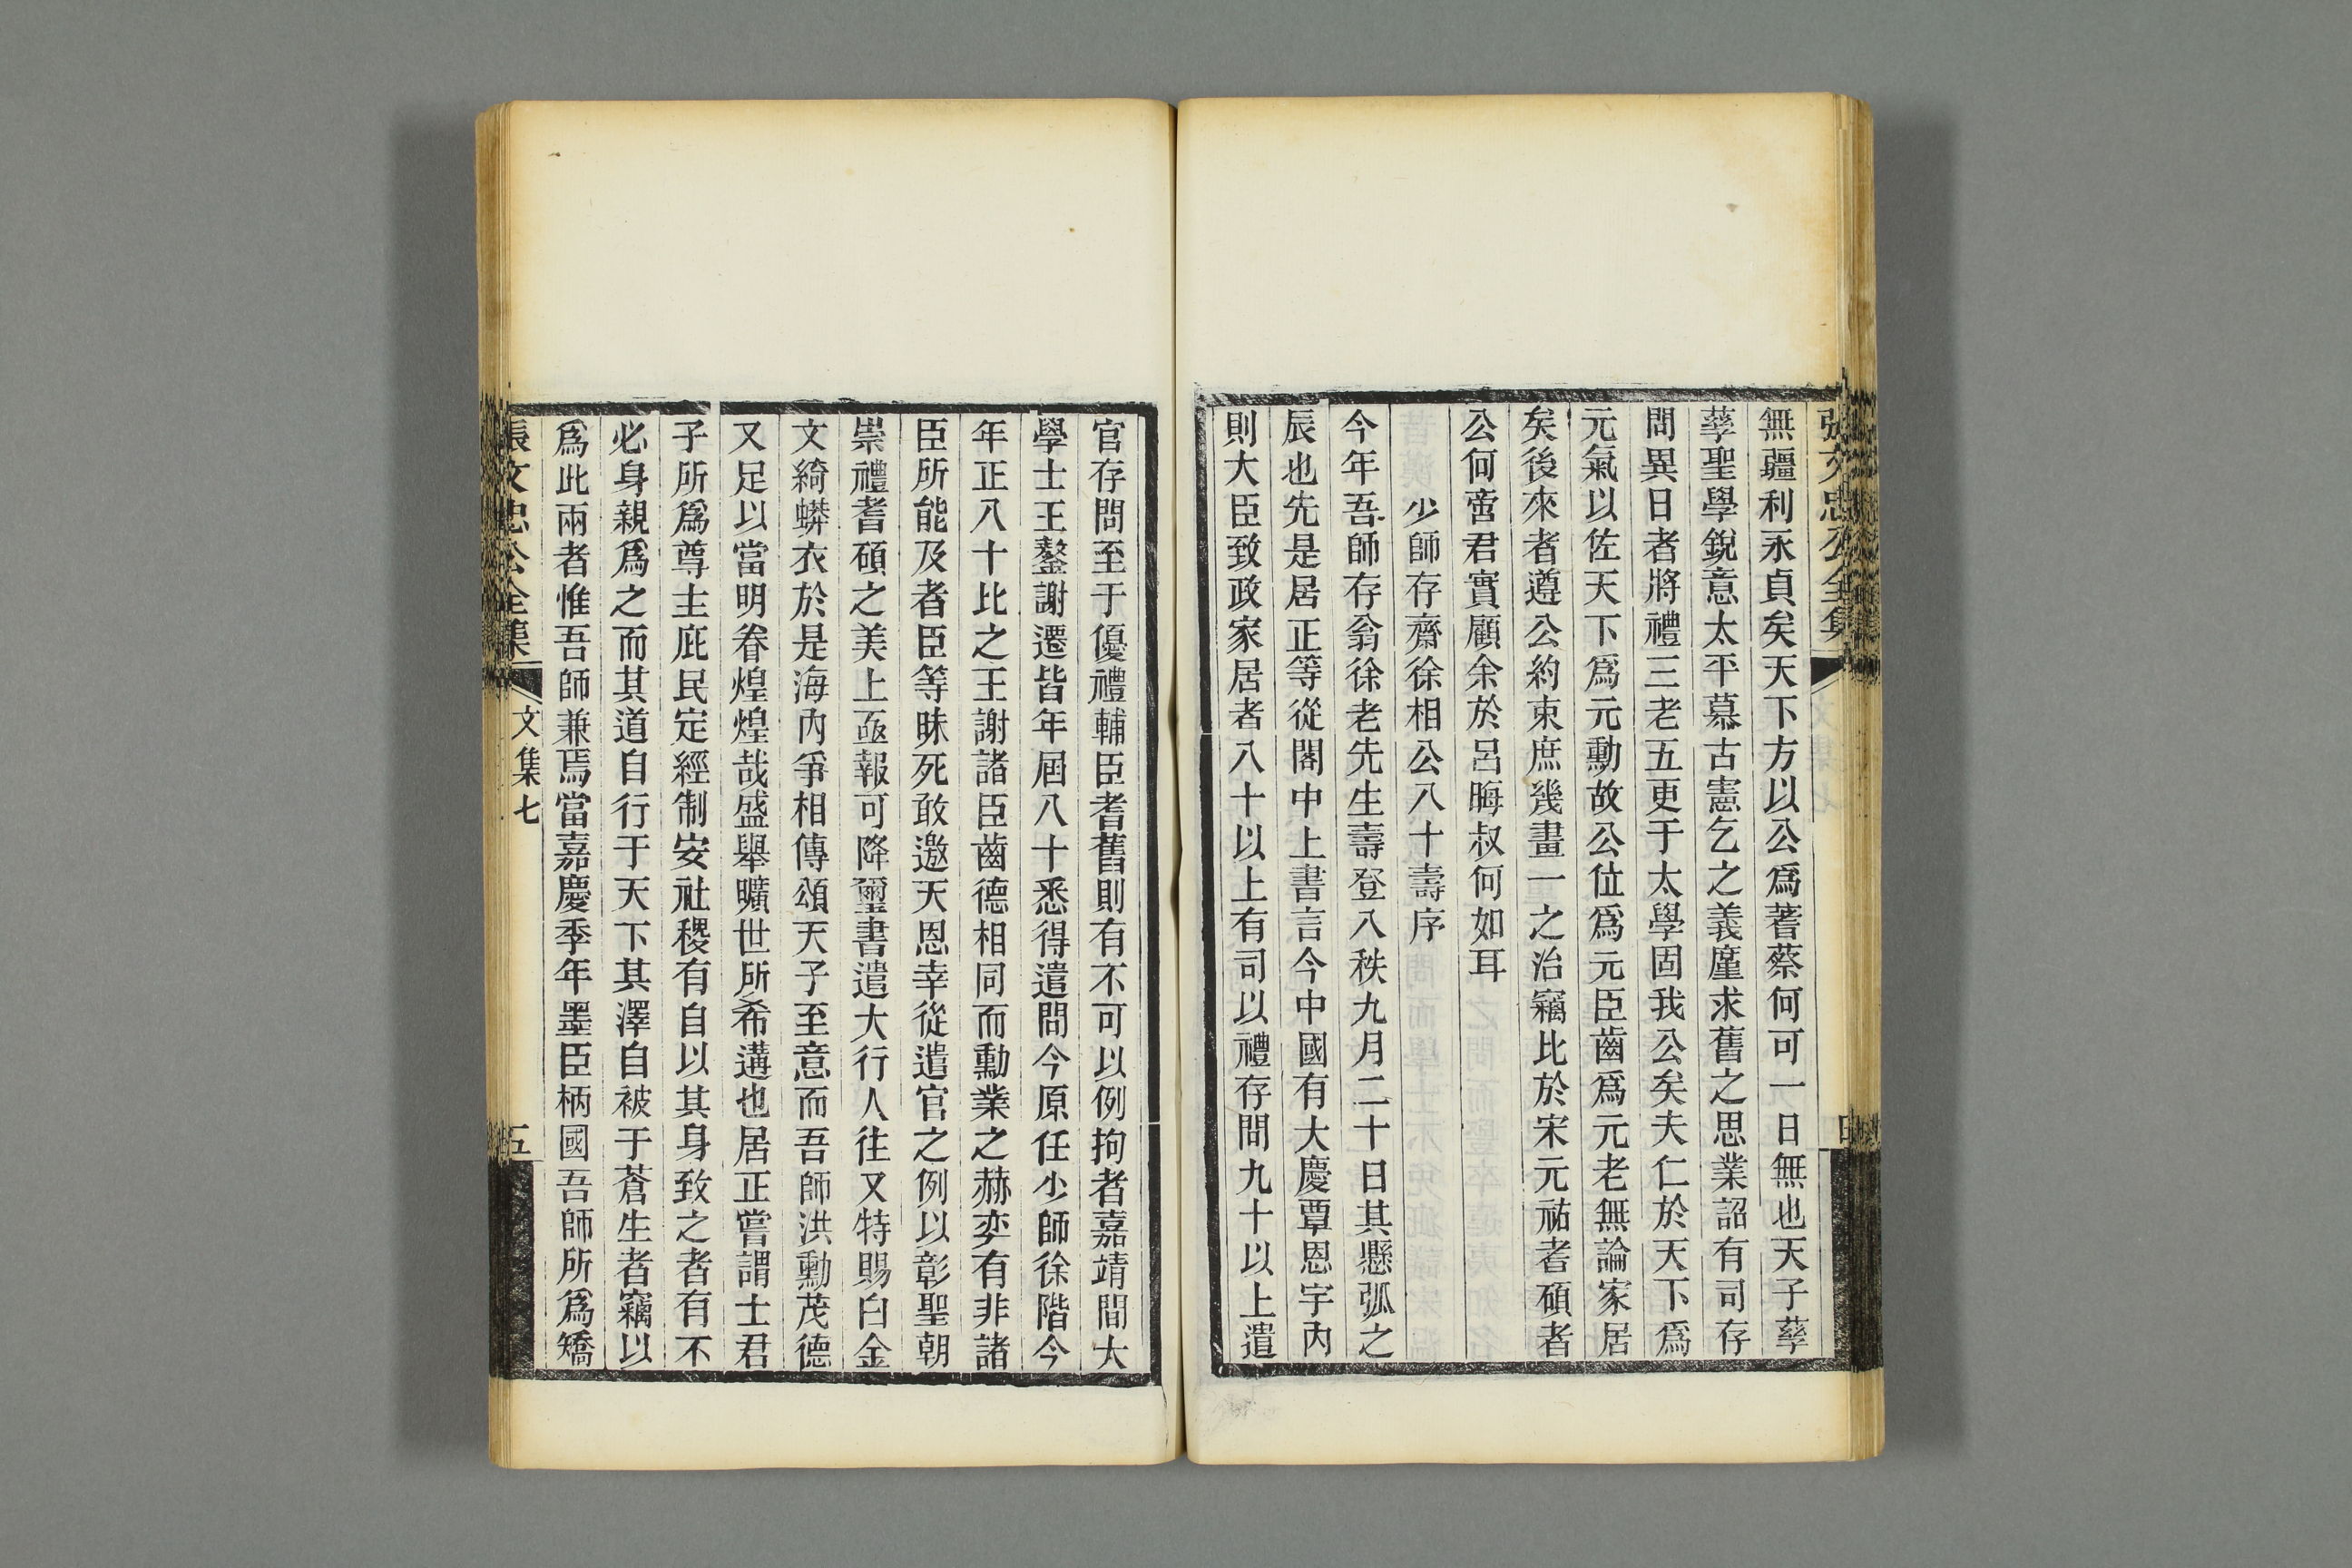 張文忠公全集
無疆利永貞矣天下方以公爲蓍蔡何可一日無也天子孳
孳聖學銳意太平慕古憲乞之義廑求舊之思業詔有司存
問異日者將禮三老五更于太學固我公矣夫仁於天下爲
元氣以佐天下爲元勳故公位爲元臣齒爲元老無論家居
矣後來者遵公約束庶幾畫一之治竊比於宋元祐耆碩者
公何啻君實顧余於呂晦叔何如耳
少師存齋徐相公八十壽序
今年吾師存翁徐老先生壽登八秩九月二十日其懸弧之
辰也先是居正等從閣中上書言今中國有大慶覃恩宇內
則大臣致政家居者八十以上有司以禮存問九十以上遣
官存問至于優禮輔臣耆舊則有不可以例拘者嘉靖間大
學士王鏊謝遷皆年屆八十悉得遣問今原任少師徐階今
年正八十比之王謝諸臣齒德相同而勳業之赫奕有非諸
臣所能及者臣等昧死敢邀天恩幸從遣官之例以彰聖朝
崇禮耆碩之美上亟報可降璽書遣大行人往又特賜白金
文綺蟒衣於是海內爭相傳頌天子至意而吾師洪勳茂德
又足以當明眷煌煌哉盛舉曠世所希遘也居正嘗謂士君
子所爲尊主庇民定經制安社稷有自以其身致之者有不
必身親爲之而其道自行于天下其澤自被于蒼生者竊以
爲此兩者惟吾師兼焉當嘉慶季年墨臣柄國吾師所爲矯
張文忠公全集
文集七
五